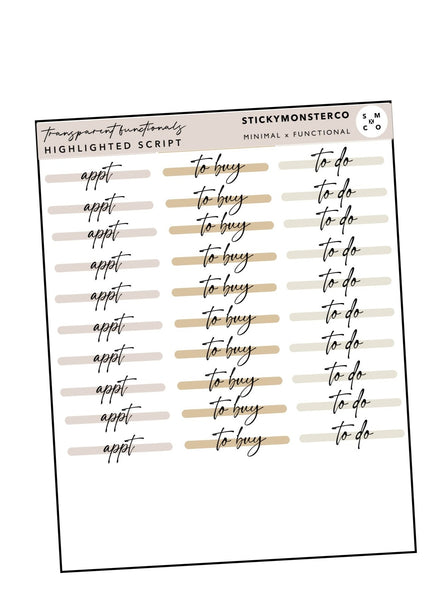 transparent functionals
HIGHLIGHTED SCRIPT
STICKYMONSTERCO
MINIMAL x FUNCTIONAL
S M
N
C O
appt to buy to do
appt to buy to do
appt to buy to do
appt to buy to do
appt to buy to do
appt to buy to do
appt to buy to do
appt to buy to do
appt to buy to do
appt to buy to do